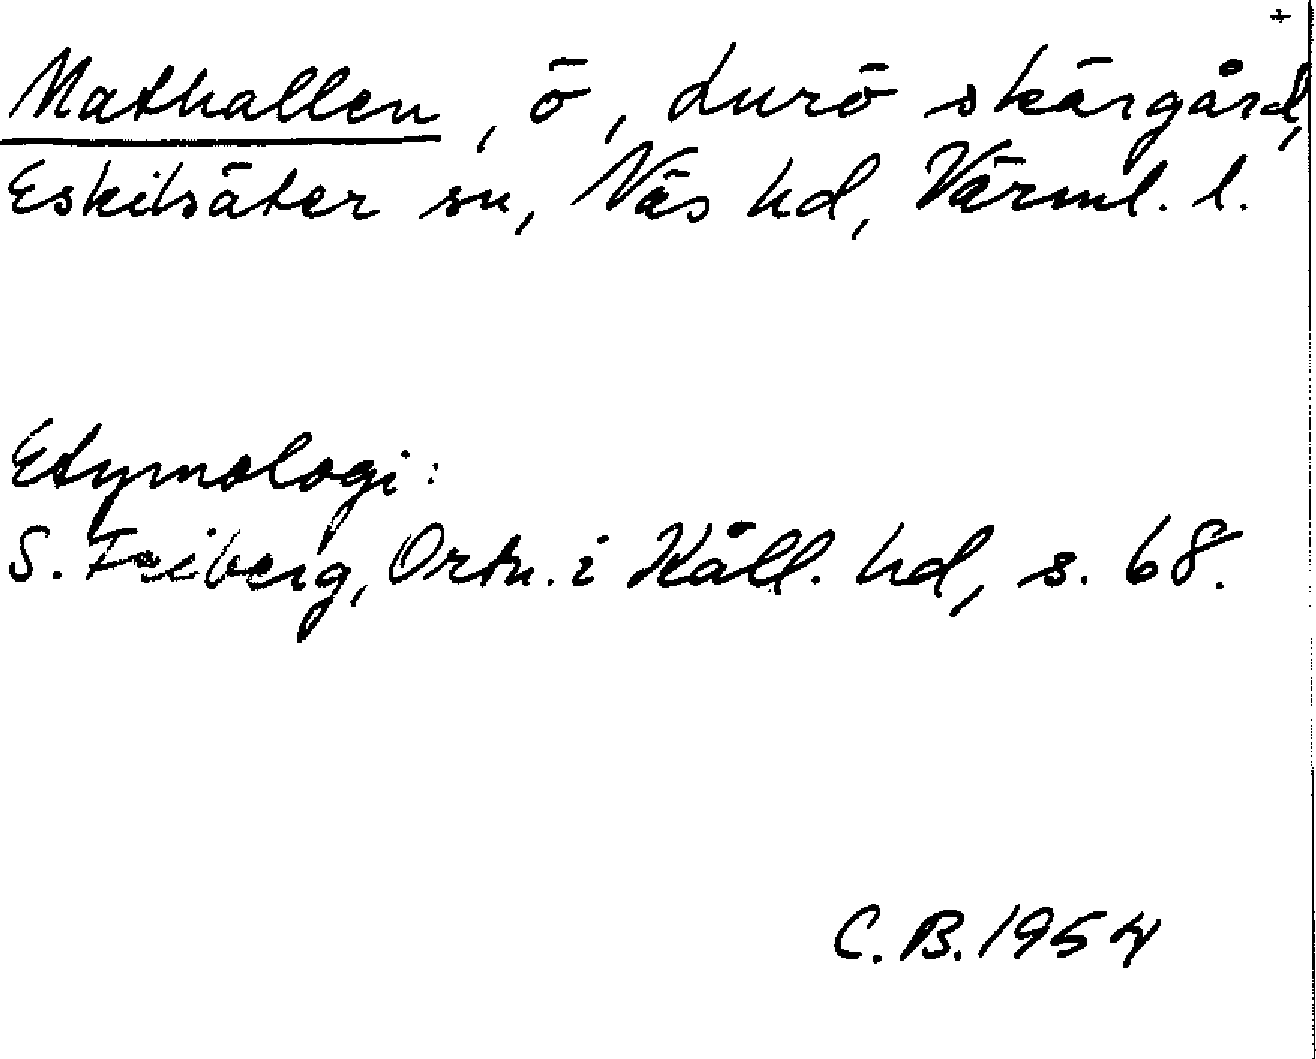 +
Mathallen, ö, Lurö skärgård,
Eskilsäter sn, Näs hd, Värml. l.
Etymologi:
S. Freiberg, Ortn. i Kåll. hd, s. 68.
C.B. 1954